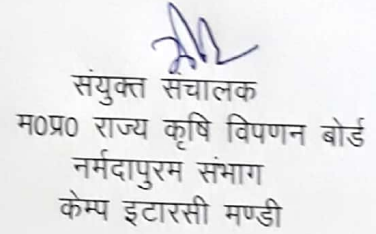 संयुक्त संचालक
म०प्र० राज्य कृषि विपणन बोर्ड
नर्मदापुरम संभाग
केम्प इटारसी मण्डी